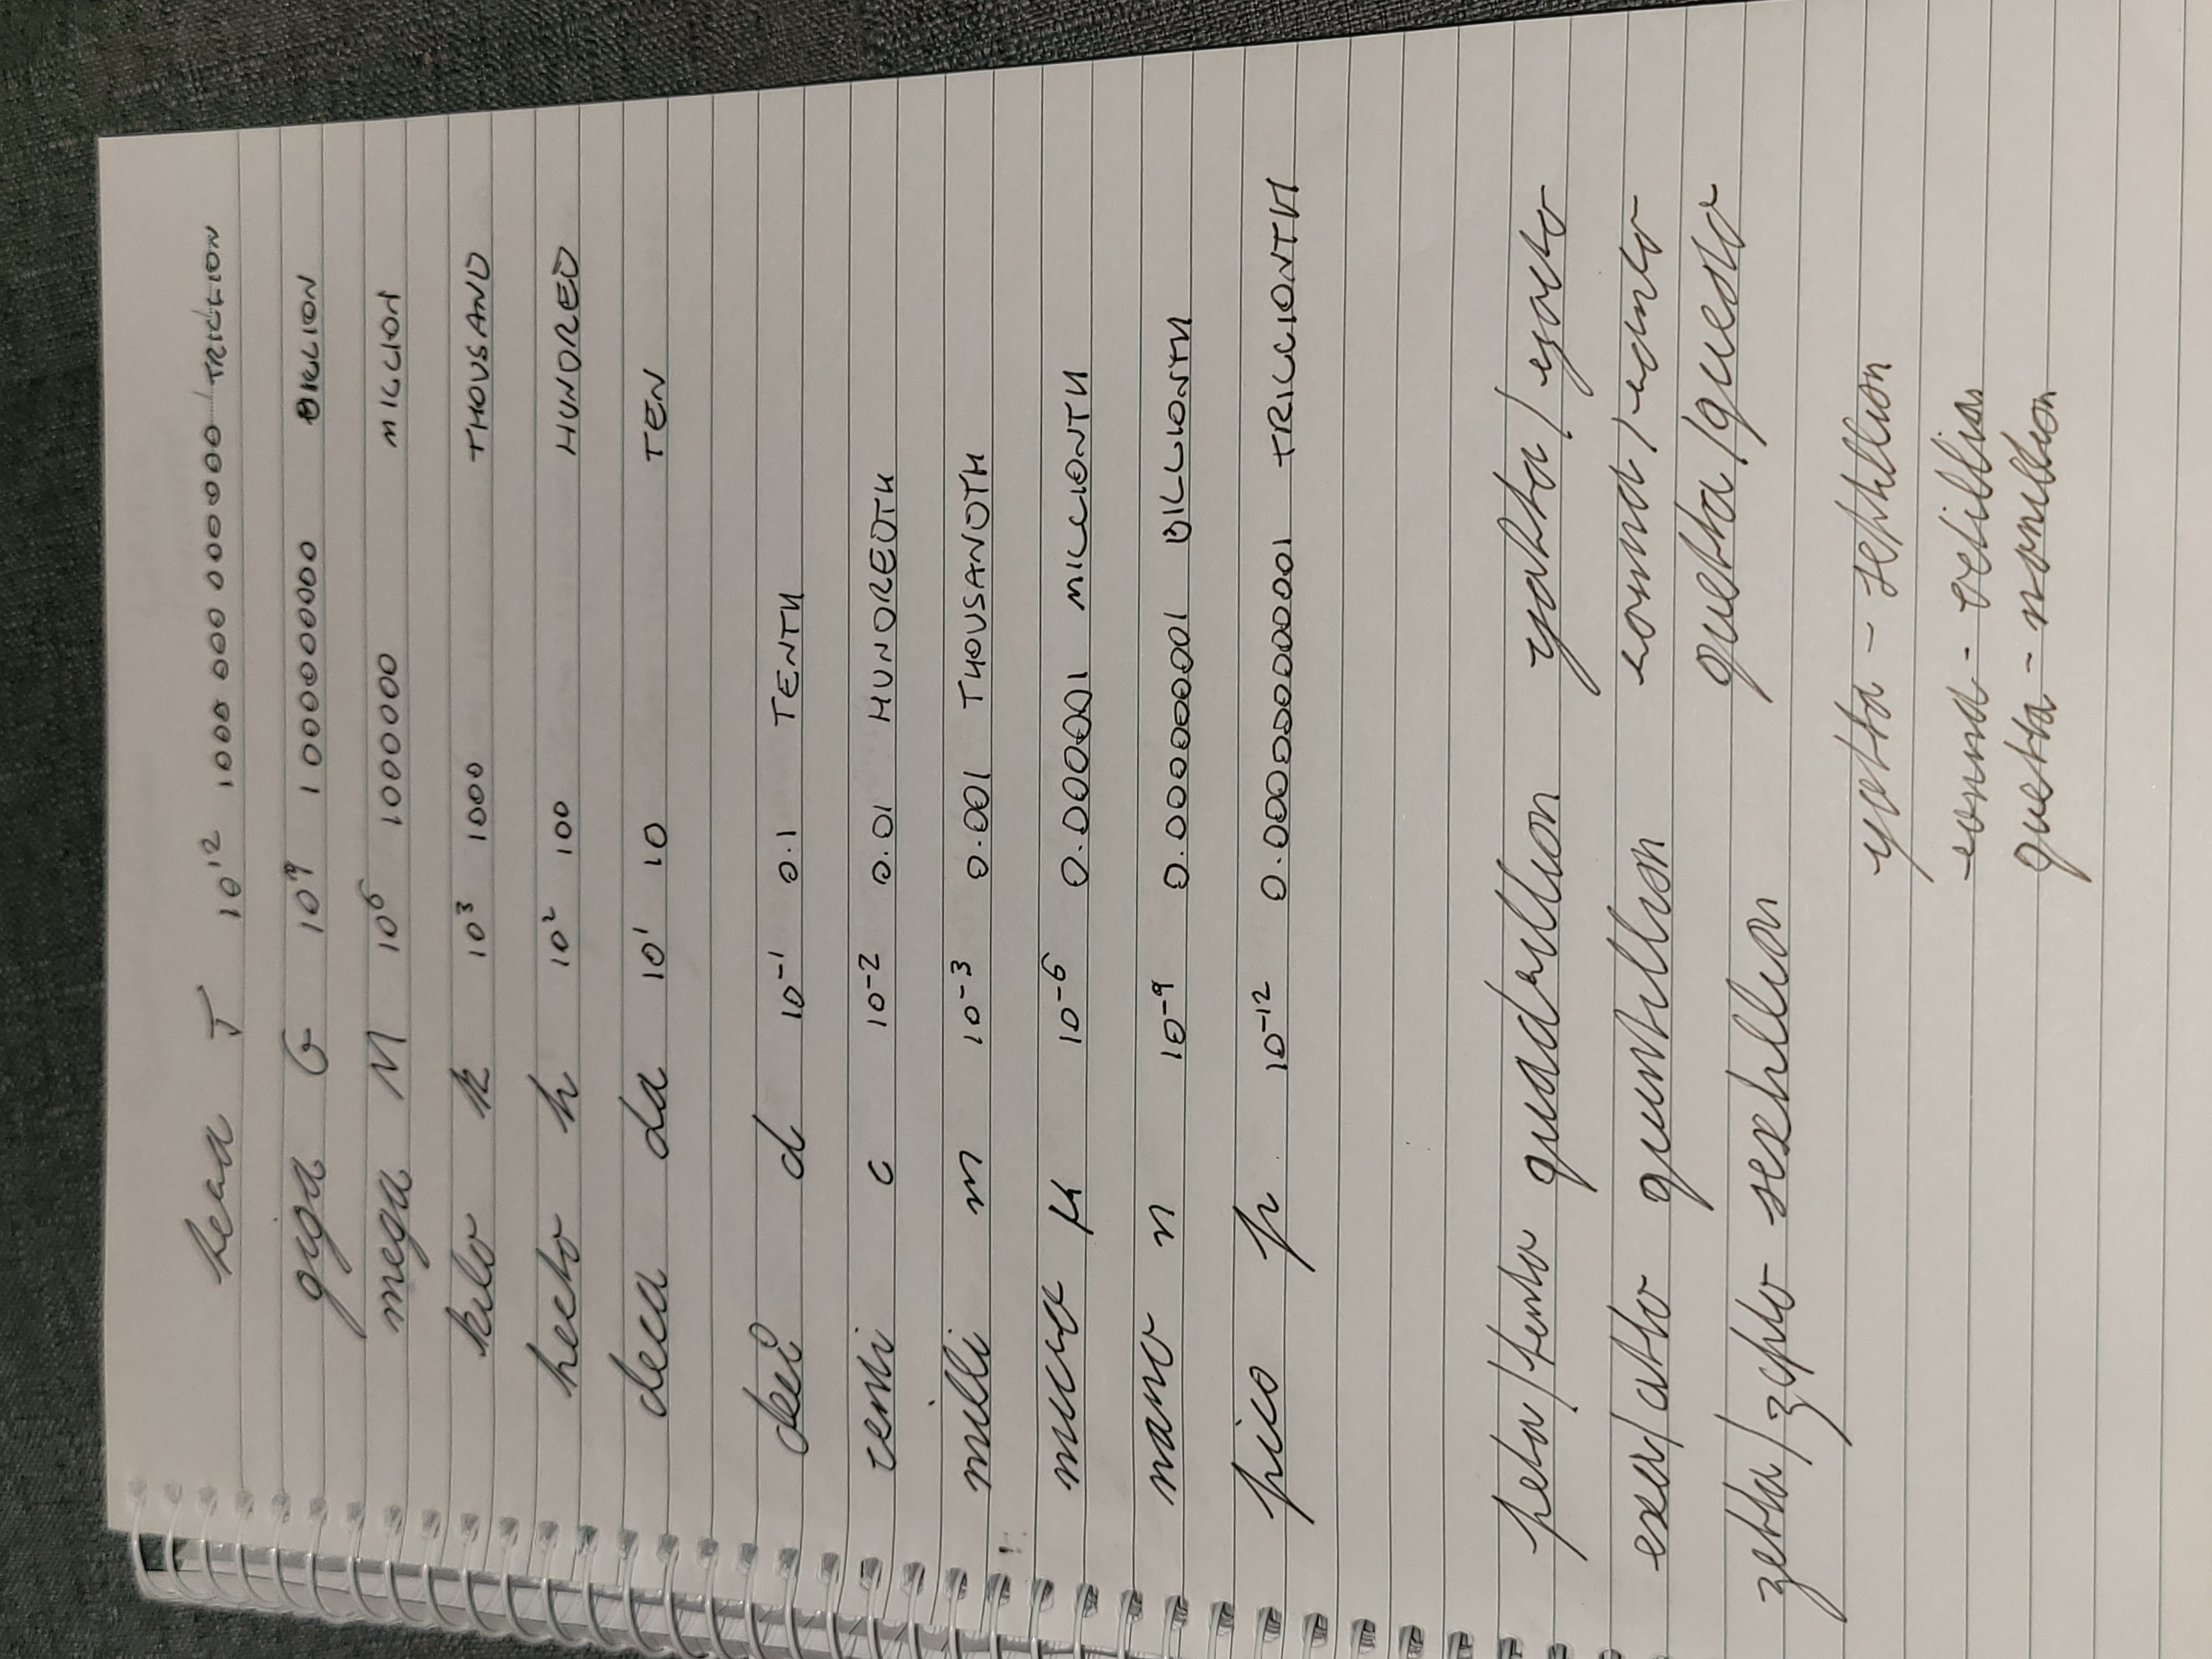 tera T 10¹² 1000 000 000000 TRILLION
giga G 10⁹ 1 000000000 BILLION
mega M 10⁶ 1000000 MILLION
kilo k 10³ 1000 THOUSAND
hecto h 10² 100 HUNDRED
deca da 10¹ 10 TEN
deci d 10⁻¹ 0.1 TENTH
centi c 10⁻² 0.01 HUNDREDTH
milli m 10⁻³ 0.001 THOUSANDTH
micro μ 10⁻⁶ 0.000001 MILLIONTH
nano n 10⁻⁹ 0.000000001 BILLIONTH
pico p 10⁻¹² 0.000000000001 TRILLIONTH
peta/femto quadrillion
exa/atto quintillion
zetta/zepto sextillion
yotta/yocto
ronna/ronto
quetta/
yotta - septillion
ronna - octillion
quetta - nonillion